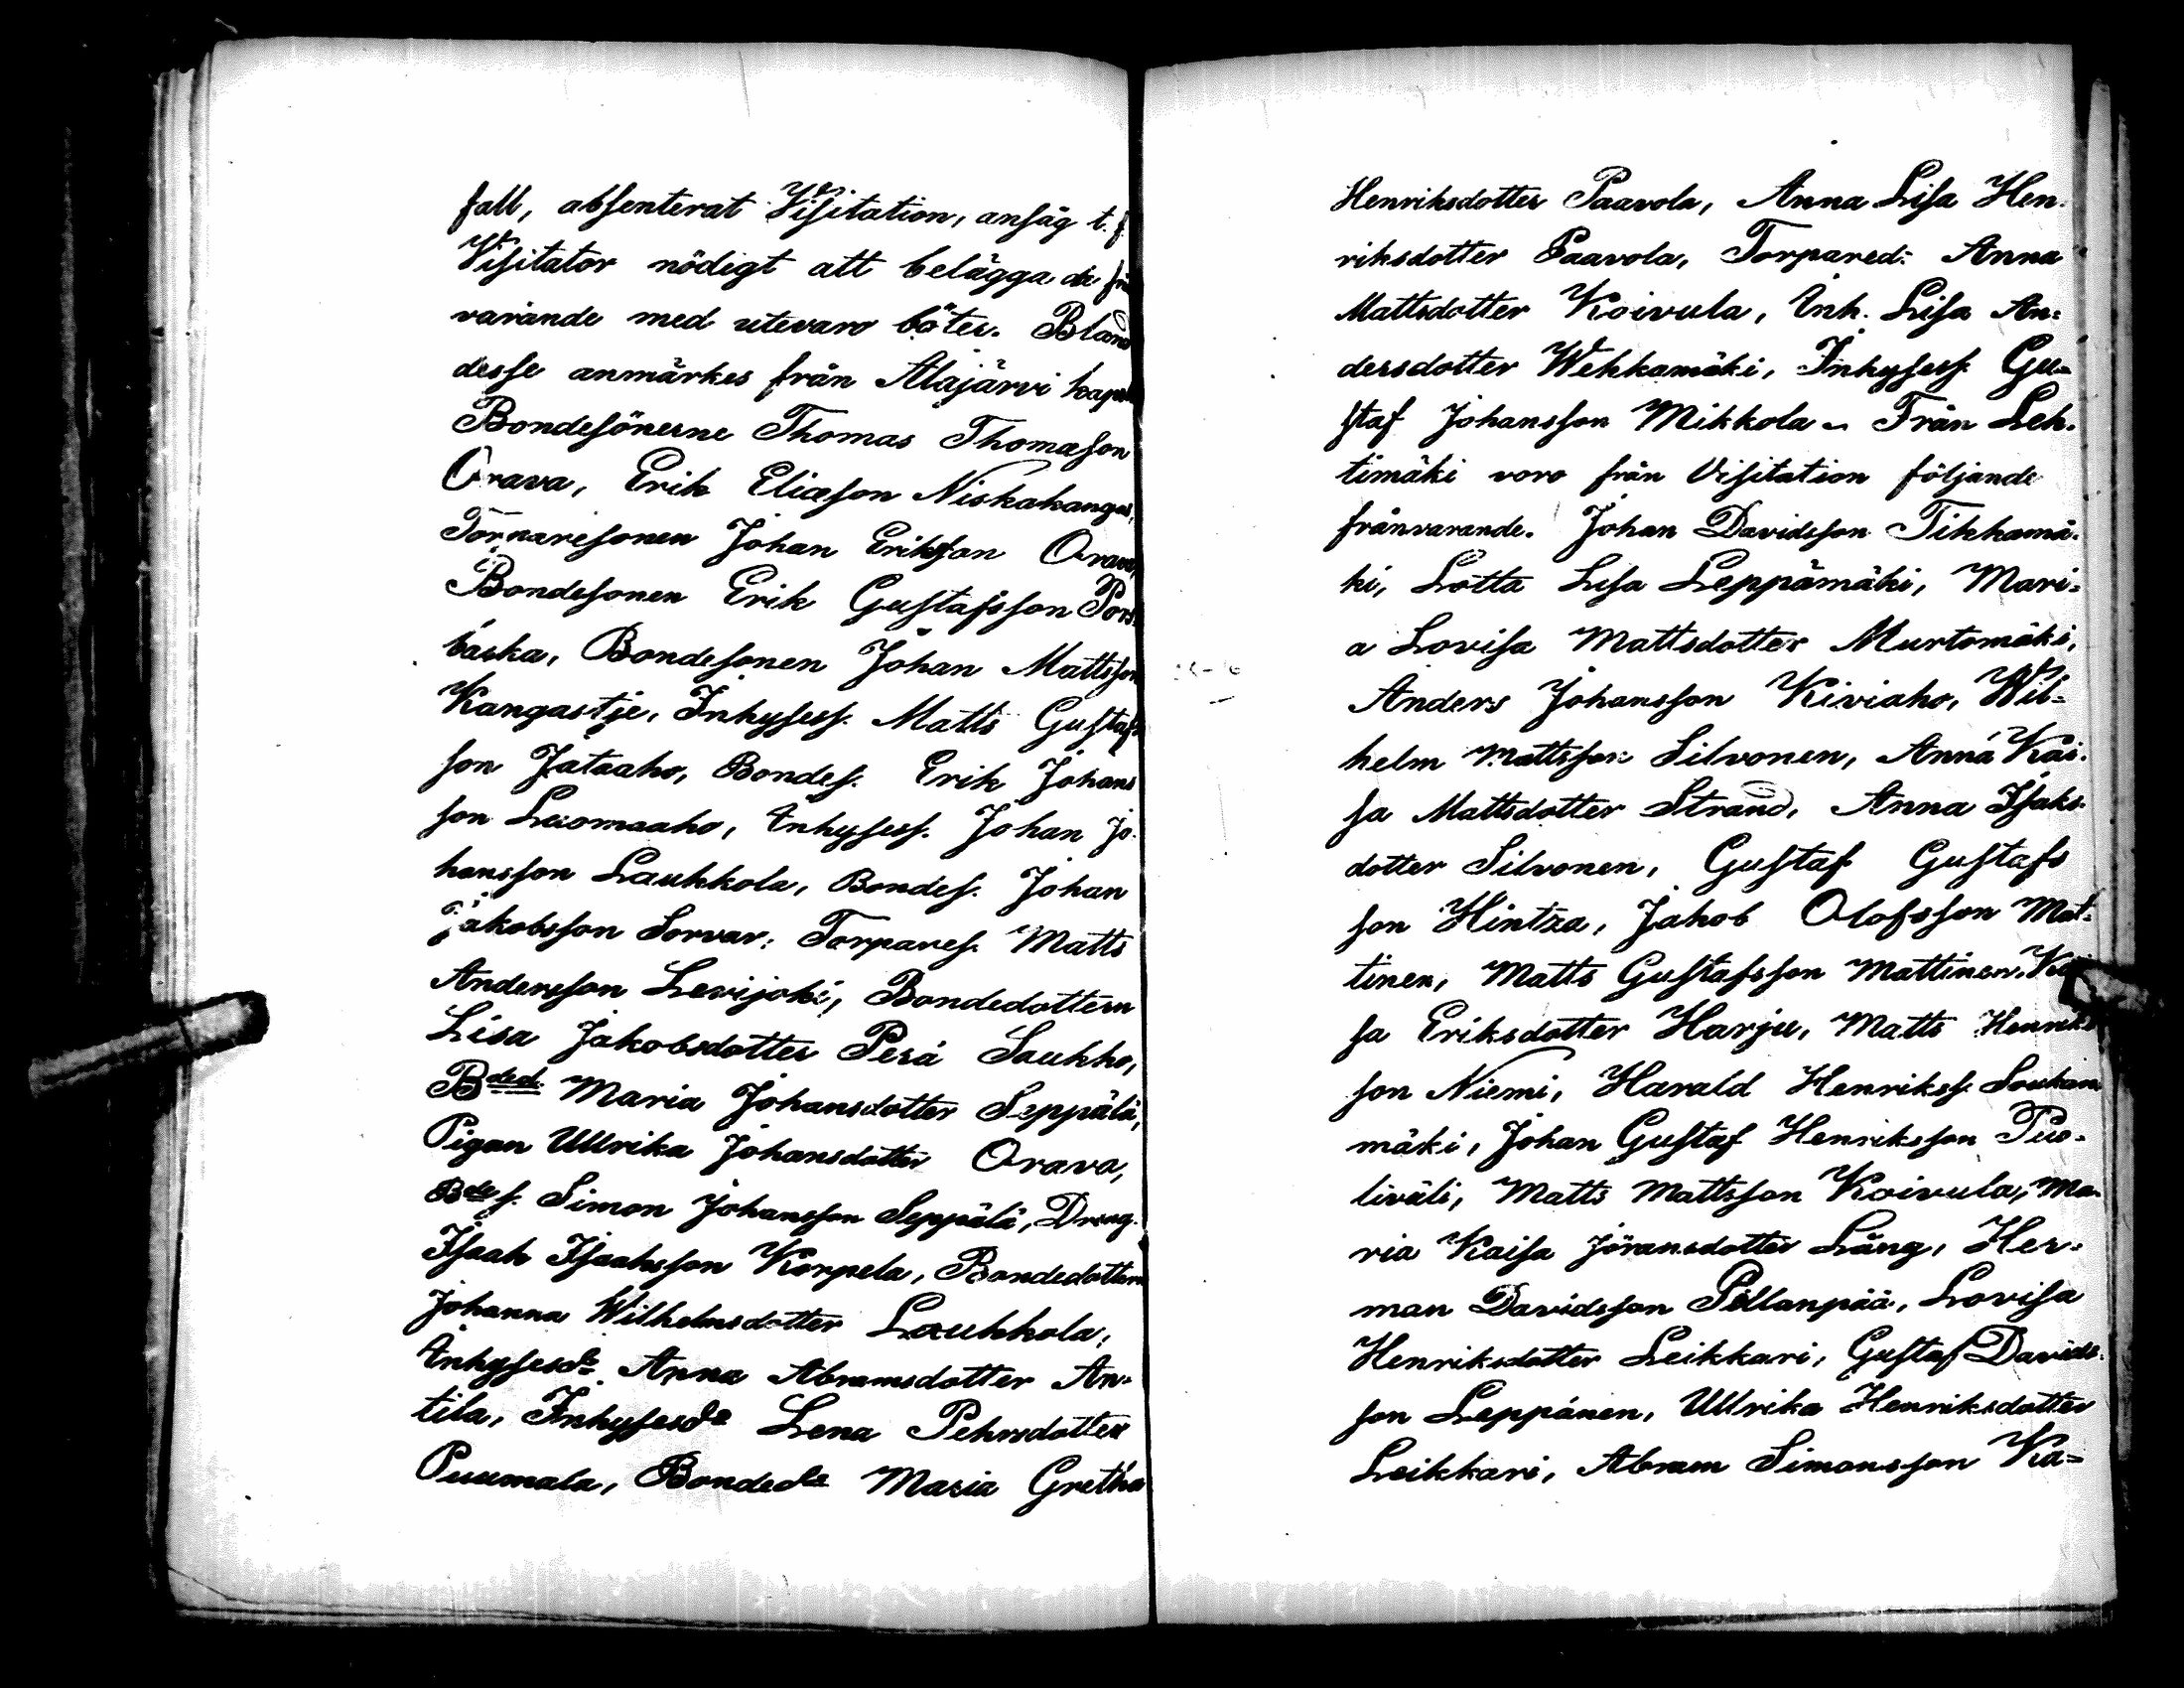 fall, absenterat Visitation, ansåg t. f.
Visitator nödigt att belägga de från
varande med utevaro böter. Bland
desse anmärkes från Alajärvi kapell
Bondesönerne Thomas Thomason
Orava, Erik Eliæson Niskakangas,
Torparesonen Johan Eriksson Orava,
Bondesonen Erik Gustafsson Pors
baska, Bondesonen Johan Mattsson
Kangastje, Inhysess. Matts Gustafs
son Jätaaho, Bondes. Erik Johans
son Luomaaho, Inhysess. Johan Jo-
hansson Laukkola, Bondes. Johan
Jakobsson Sorvar, Torpares. Matts
Andersson Levijoki, Bondedottern
Lisa Jakobsdotter Perä Saukko,
Bded. Maria Johansdotter Seppälä,
Pigan Ullrika Johansdotter Orava,
Bde s. Simon Johansson Seppälä, Dreng.
Isaak Isaaksson Korpela, Bondedottern
Johanna Wilhelmsdotter Laukkola,
Inhysesde Anna Abramsdotter An-
tila, Inhysesde Lena Pehrsdotter
Puumala, Bondede Maria Gretha
Henriksdotter Paavola, Anna Lisa Hen-
riksdotter Paavola, Torpared: Anna
Mattsdotter Koivula, Inh. Lisa An-
dersdotter Wehkamäki, Inhysess. Gu-
staf Johansson Mikkola – Från Leh-
timäki voro från Visitation följande
frånvarande. Johan Davidsson Tikkamä-
ki, Lotta Lisa Leppämäki, Mari-
a Lovisa Mattsdotter Murtomäki,
Anders Johansson Kiviaho, Wil-
helm Mattsson Silvonen, Anna Kai-
sa Mattsdotter Strand, Anna Isaks-
dotter Silvonen, Gustaf Gustafs
son Hintza, Jakob Olofsson Mat-
tinen, Matts Gustafsson Mattinen, Kai
sa Eriksdotter Harju, Matts Henriks
son Niemi, Harald Henrikss. Soukan
mäki, Johan Gustaf Henriksson Puo-
liväli, Matts Mattsson Koivula, Ma-
ria Kaisa Jöransdotter Lång, Her-
man Davidsson Pellanpää, Lovisa
Henriksdotter Leikkari, Gustaf Davids-
son Leppänen, Ullrika Henriksdotter
Leikkari, Abram Simonsson Ka-